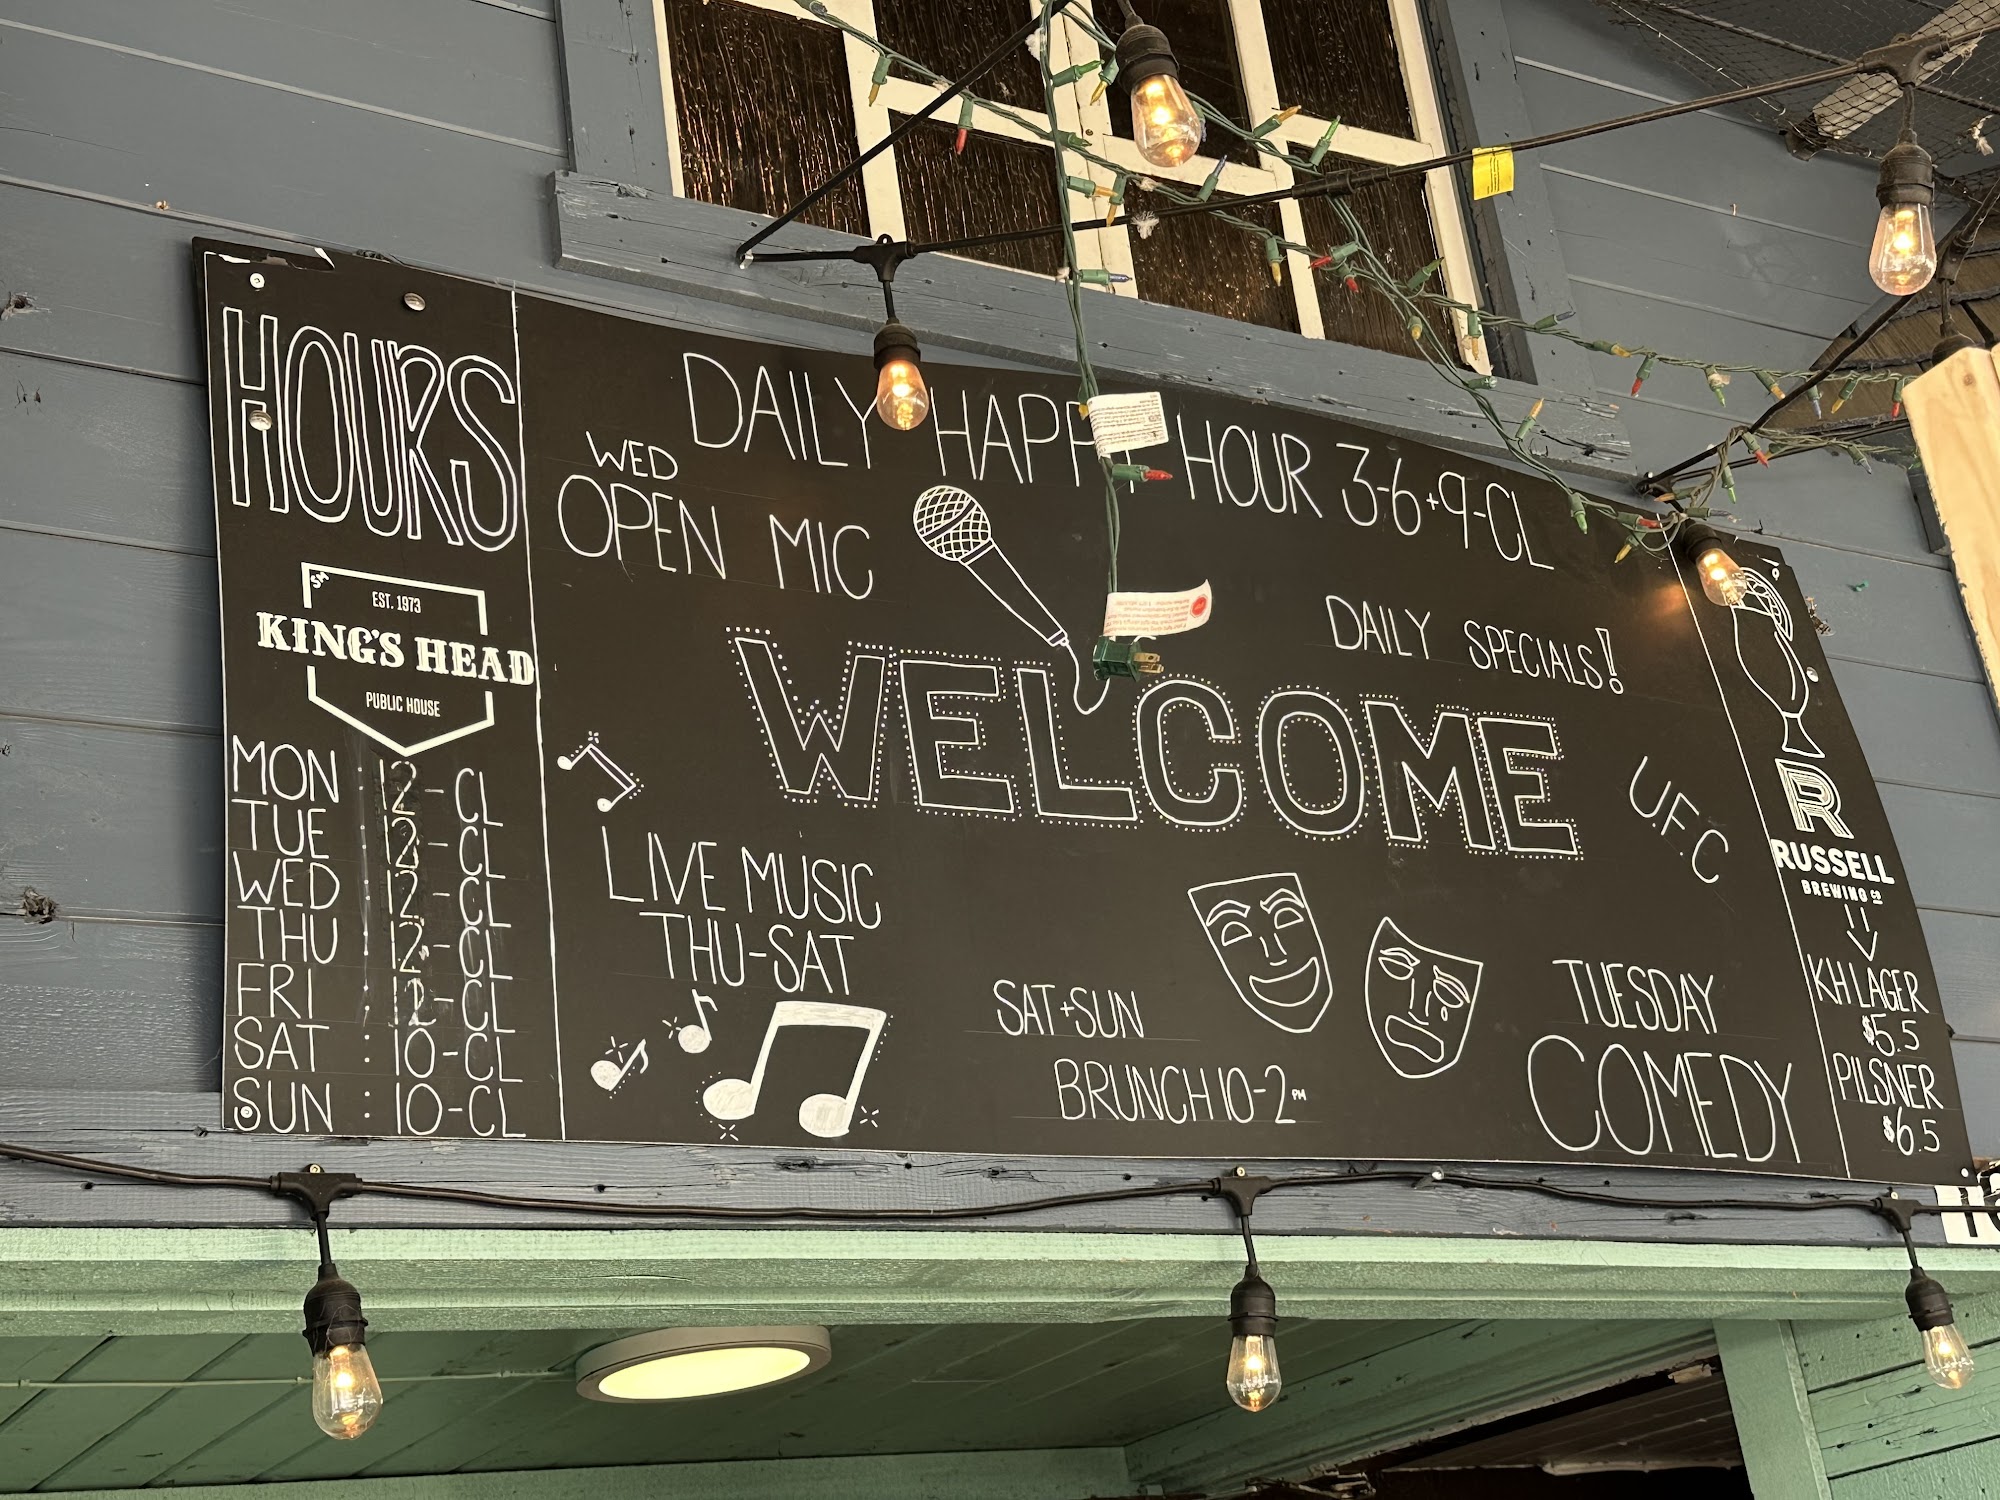 HOURS
SM
EST. 1973
KING'S HEAD
PUBLIC HOUSE
MON : 12 - CL
TUE : 12 - CL
WED : 12 - CL
THU : 12 - CL
FRI : 12 - CL
SAT : 10 - CL
SUN : 10 - CL
DAILY HAPPY HOUR 3-6 + 9-CL
WED
OPEN MIC
DAILY SPECIALS!
WELCOME
UFC
LIVE MUSIC
THU-SAT
SAT + SUN
BRUNCH 10-2 PM
TUESDAY
COMEDY
R
RUSSELL
BREWING CO
KH LAGER
$5.5
PILSNER
$6.5